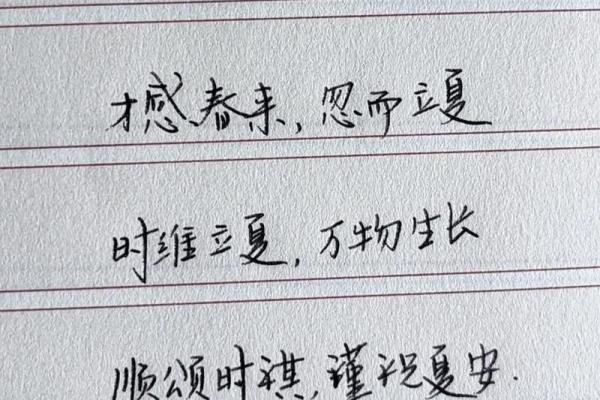 才感春来，忽而立夏
时维立夏，万物生长
顺颂时祺，谨祝夏安.